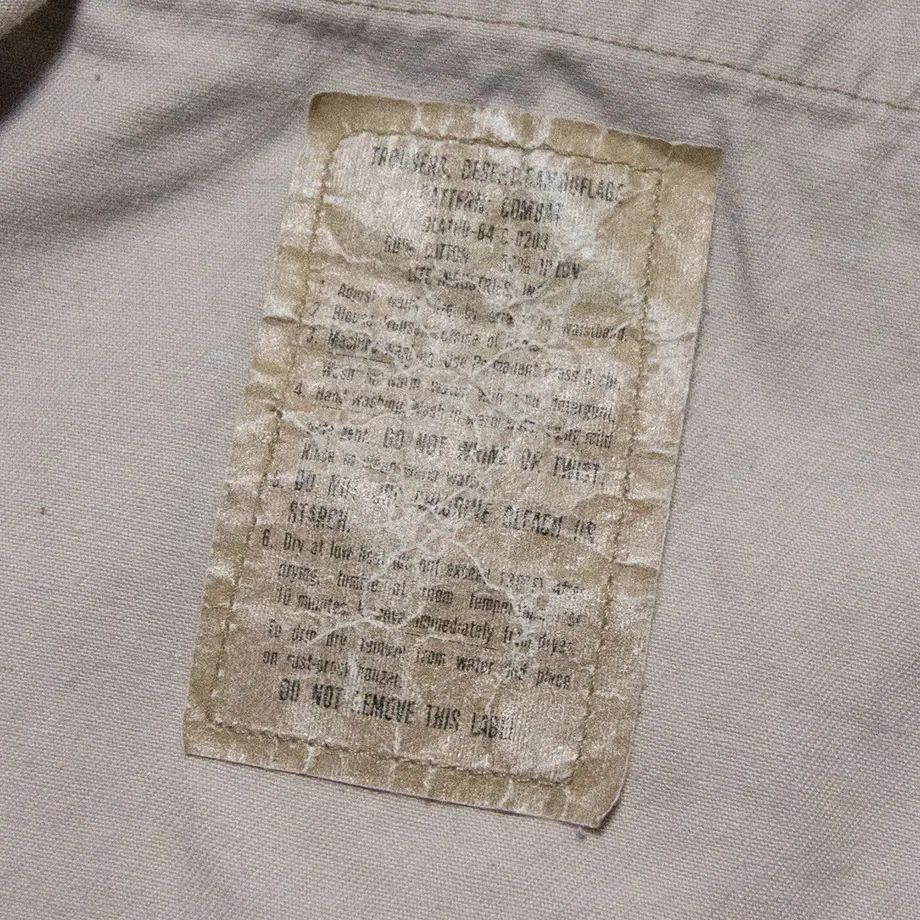 TROUSERS, DESERT CAMOUFLAGE
PATTERN: COMBAT
50% COTTON 50% NYLON
INDUSTRIES INC
1. Adjust waistband.
2. Blouse
3. Machine washing. Use Permanent Press Cycle.
Wash in warm water with mild detergent.
4. Hand washing. Wash in warm mild
DO NOT WRING OR TWIST.
Rinse in clean warm water.
5. DO NOT USE CHLORINE BLEACH OR
STARCH.
6. Dry at low heat (do not exceed After
drying, room temperature for
10 minutes. Remove immediately from dryer.
To drip dry remove from water and place
on rust-proof hanger.
DO NOT REMOVE THIS LABEL